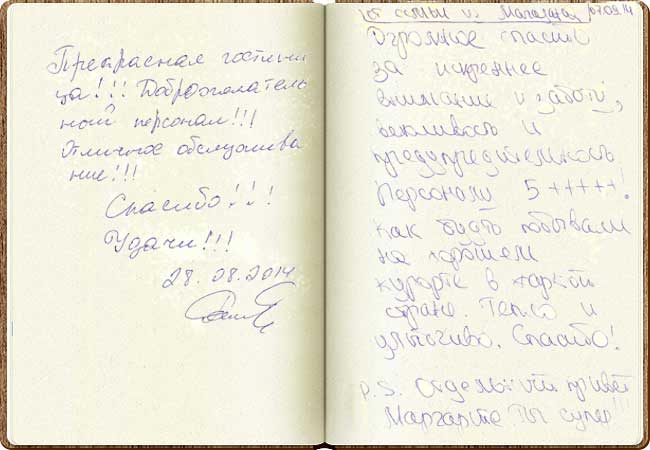 Прекрасная гостини
ца!!! Доброжелатель
ный персонал!!!
Отличное обслужива
ние!!!
Спасибо!!!
Удачи!!!
28.08.2014
от семьи из Магадана 07.09.14
Огромное спасибо
за искреннее
внимание и заботу,
вежливость и
предупредительность.
Персоналу 5+++++!
Как будто побывали
на хорошем
курорте в жаркой
стране. Тепло и
улыбчиво. Спасибо!
P.S. Отдельный привет
Маргарите. Ты супер!!!